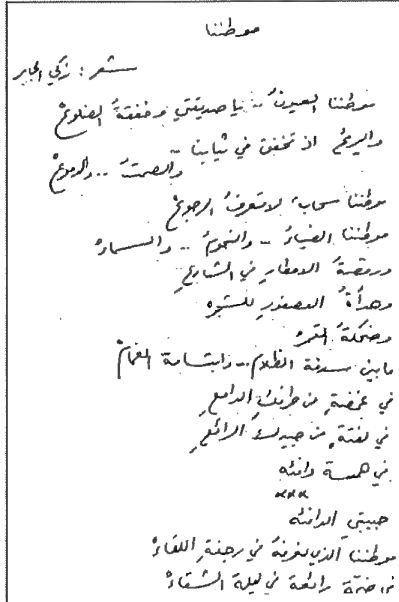 موطننا
شعر : زكي الجابر
موطننا العيونُ .. يا صديقتي وخفقةُ الضلوعْ
والريحُ اذ تخفق في ثيابنا .. والصمتُ .. والدموعْ
موطننا سحابة لا تعرفُ الرجوعْ
موطننا الضياءُ .. والنجومُ .. والسماءْ
ورقصةُ الامطارِ في الشارعِ
وهدأةُ العصفورِ للشجره
وضحكةُ القمرْ
ما بين سدفة الظلام .. وابتسامة الغمامْ
في غمضةٍ من طرفكِ الدامعِ
في لفتةٍ من جيدكِ الرائعِ
في همسة دافئه
×××
حبيبتي الدافئه
موطننا الذي نعرفهُ في رجفةِ اللقاءْ
في ضمّة رائعة في ليلة الشتاءْ